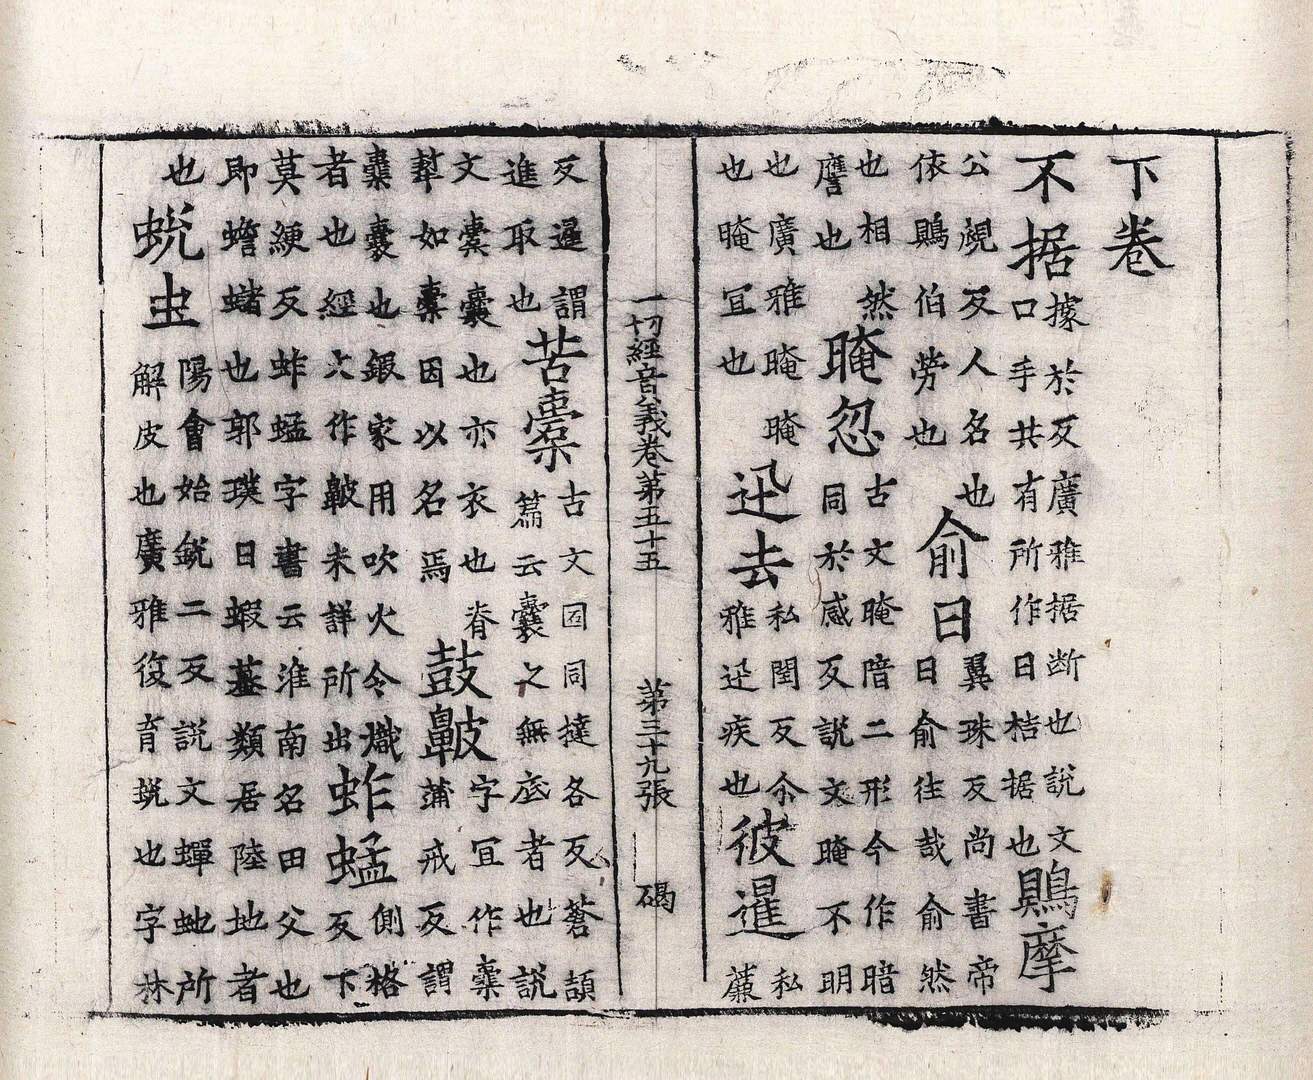 下卷
不据
據於反廣雅据断也說文
口手共有所作曰桔据也
鶪摩
公覤反人名也
依鶪伯劳也
俞曰
翼珠反尚書帝
曰俞往哉俞然
也相然
譍也
晻忽
古文晻暗二形今作暗
同於感反說文晻不明
也廣雅晻晻
也晻冝也
迅去
私閏反尒
雅迅疾也
彼暹
私
薕
一切經音義卷第五十五 第三十九張 碣
反暹謂
進取也
苦橐
古文囙同撻各反蒼頡
篇云囊之無底者也說
文橐囊也亦衣也脊
鞤如橐因以名焉
鼓皷
字冝作橐
蒲戒反謂
橐囊也鍛家用吹火令熾
者也經文作皷未詳所出
蚱蜢
側格
反下
莫綆反蚱蜢字書云淮南名田父也
即蟾蠩也郭璞曰蝦蟇類居陸地者
也
蛻虫
陽會始銳二反說文蟬虵所
解皮也廣雅復育蛻也字林